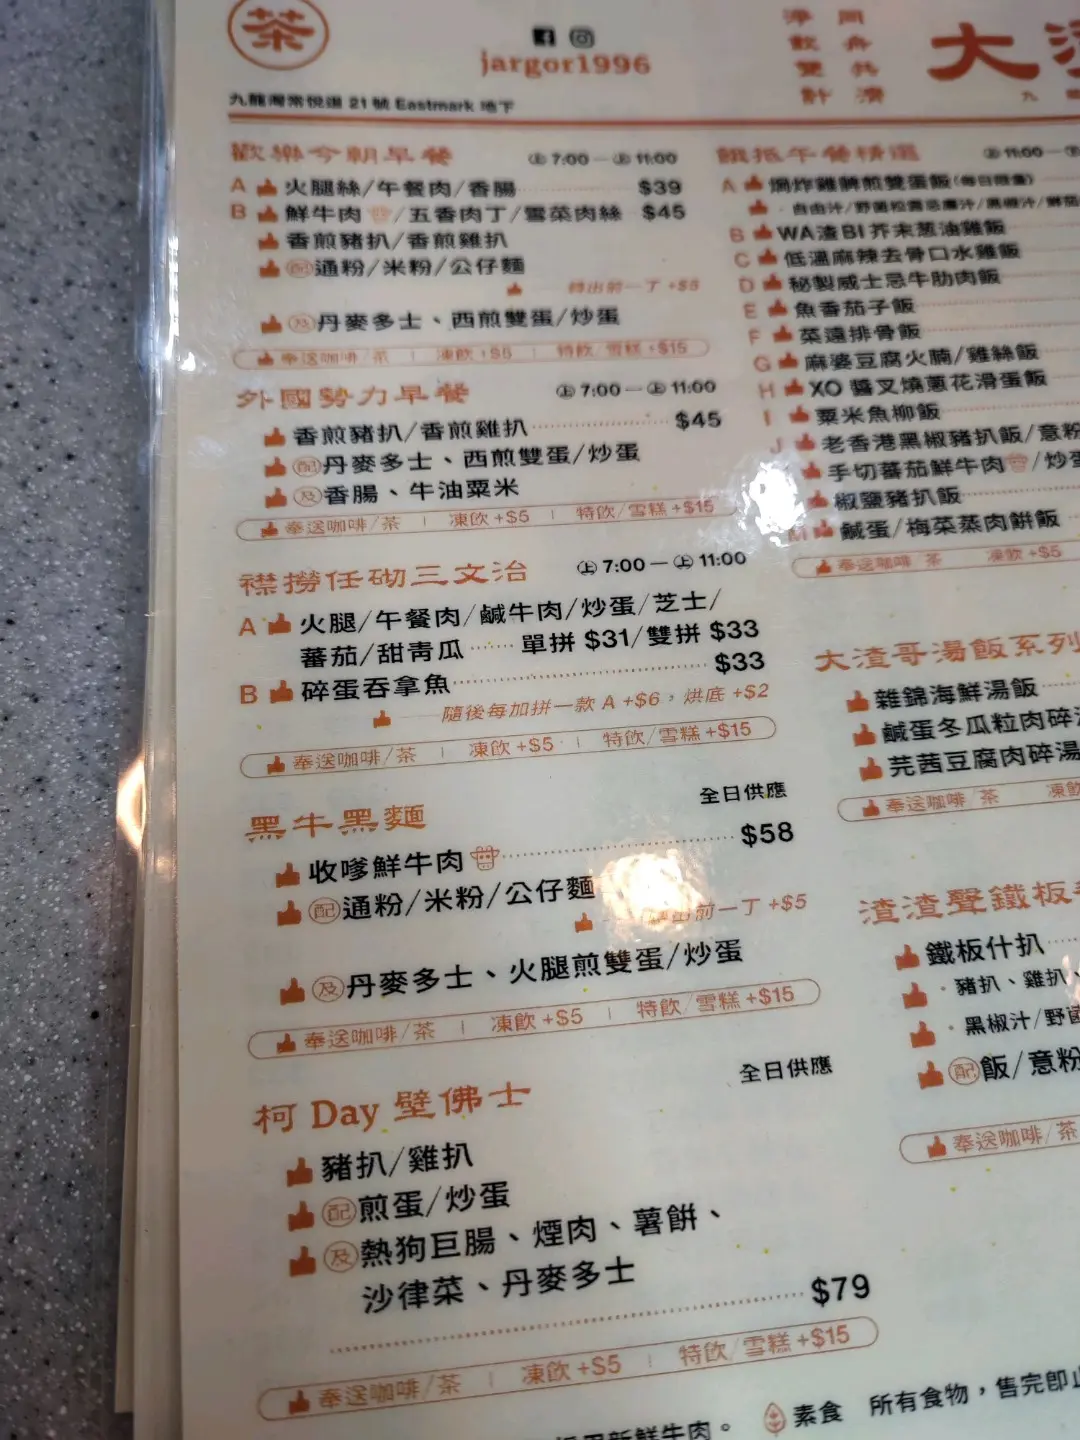 茶
jargor1996
九龍灣常悅道 21 號 Eastmark 地下
同舟共濟
大
歡樂今朝早餐 上 7:00 — 上 11:00
A 火腿絲/午餐肉/香腸 $39
B 鮮牛肉/五香肉丁/雪菜肉絲 $45
香煎豬扒/香煎雞扒
配 通粉/米粉/公仔麵
轉出前一丁 +$5
及 丹麥多士、西煎雙蛋/炒蛋
奉送咖啡/茶 | 凍飲 +$5 | 特飲/雪糕 +$15
外國勢力早餐 上 7:00 — 上 11:00
香煎豬扒/香煎雞扒 $45
配 丹麥多士、西煎雙蛋/炒蛋
及 香腸、牛油粟米
奉送咖啡/茶 | 凍飲 +$5 | 特飲/雪糕 +$15
襟撈任砌三文治 上 7:00 — 上 11:00
A 火腿/午餐肉/鹹牛肉/炒蛋/芝士/
蕃茄/甜青瓜 單拼 $31/雙拼 $33
B 碎蛋吞拿魚 $33
隨後每加拼一款 A +$6，烘底 +$2
奉送咖啡/茶 | 凍飲 +$5 | 特飲/雪糕 +$15
黑牛黑麵 全日供應
收嗲鮮牛肉 $58
配 通粉/米粉/公仔麵
轉出前一丁 +$5
及 丹麥多士、火腿煎雙蛋/炒蛋
奉送咖啡/茶 | 凍飲 +$5 | 特飲/雪糕 +$15
柯 Day 壁佛士 全日供應
豬扒/雞扒
配 煎蛋/炒蛋
及 熱狗巨腸、煙肉、薯餅、
沙律菜、丹麥多士
$79
奉送咖啡/茶 | 凍飲 +$5 | 特飲/雪糕 +$15
餓抵午餐精選 上 11:00 —
A 煎雙蛋飯(每日限量)
B WA渣BI芥末葱油雞飯
C 低溫麻辣去骨口水雞飯
D 秘製威士忌牛肋肉飯
E 魚香茄子飯
F 菜遠排骨飯
G 麻婆豆腐火腩/雞絲飯
H XO 醬叉燒蔥花滑蛋飯
I 粟米魚柳飯
J 老香港黑椒豬扒飯/意粉
手切蕃茄鮮牛肉/炒蛋
椒鹽豬扒飯
M 鹹蛋/梅菜蒸肉餅飯
奉送咖啡/茶 凍飲 +$5
大渣哥湯飯系列
雜錦海鮮湯飯
鹹蛋冬瓜粒肉碎湯
芫茜豆腐肉碎湯
奉送咖啡/茶 凍飲
渣渣聲鐵板
鐵板什扒
· 豬扒、雞扒、
· 黑椒汁/野菌
配 飯/意粉
奉送咖啡/茶
新鮮牛肉。 素食 所有食物，售完即止